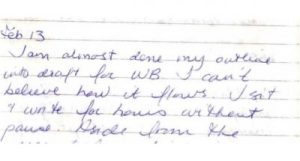 Feb 13
I am almost done my outline
into draft for WB. I can't
believe how it flows. I sit
& write for hours without
pause. Aside from the